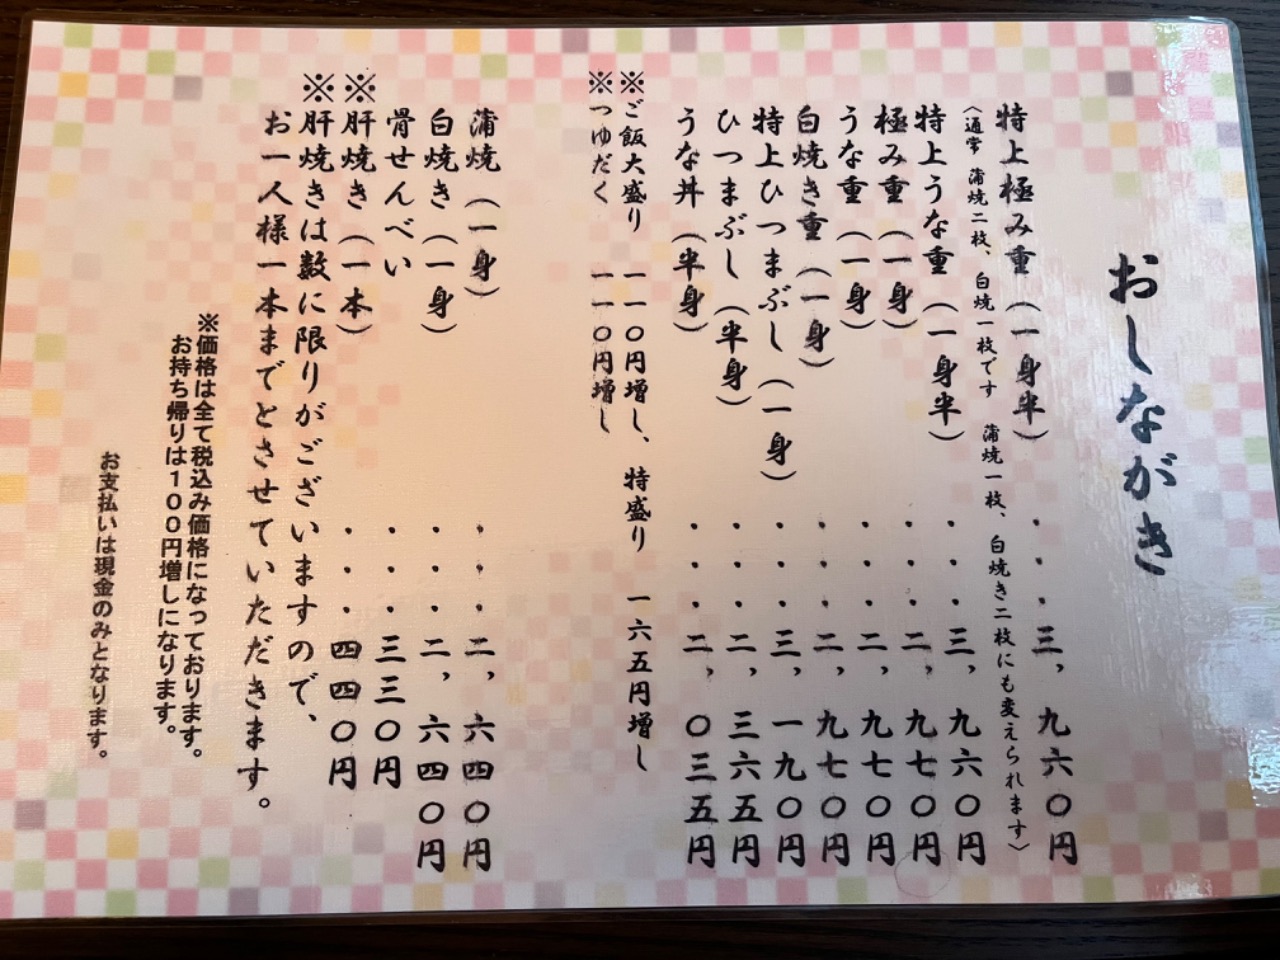 おしながき
特上極み重（一身半）・・・三，九六〇円
（通常 蒲焼二枚、白焼一枚です 蒲焼一枚、白焼き二枚にも変えられます）
特上うな重（一身半）・・・三，九六〇円
極み重（一身）・・・二，九七〇円
うな重（一身）・・・二，九七〇円
白焼き重（一身）・・・二，九七〇円
特上ひつまぶし（一身）・・・三，一九〇円
ひつまぶし（半身）・・・二，三六五円
うな丼（半身）・・・二，〇三五円
※ご飯大盛り 一一〇円増し、特盛り 一六五円増し
※つゆだく 一一〇円増し
蒲焼（一身）・・・二，六四〇円
白焼き（一身）・・・二，六四〇円
骨せんべい・・・三三〇円
※肝焼き（一本）・・・四四〇円
※肝焼きは数に限りがございますので、
お一人様一本までとさせていただきます。
※価格は全て税込み価格になっております。
お持ち帰りは１００円増しになります。
お支払いは現金のみとなります。